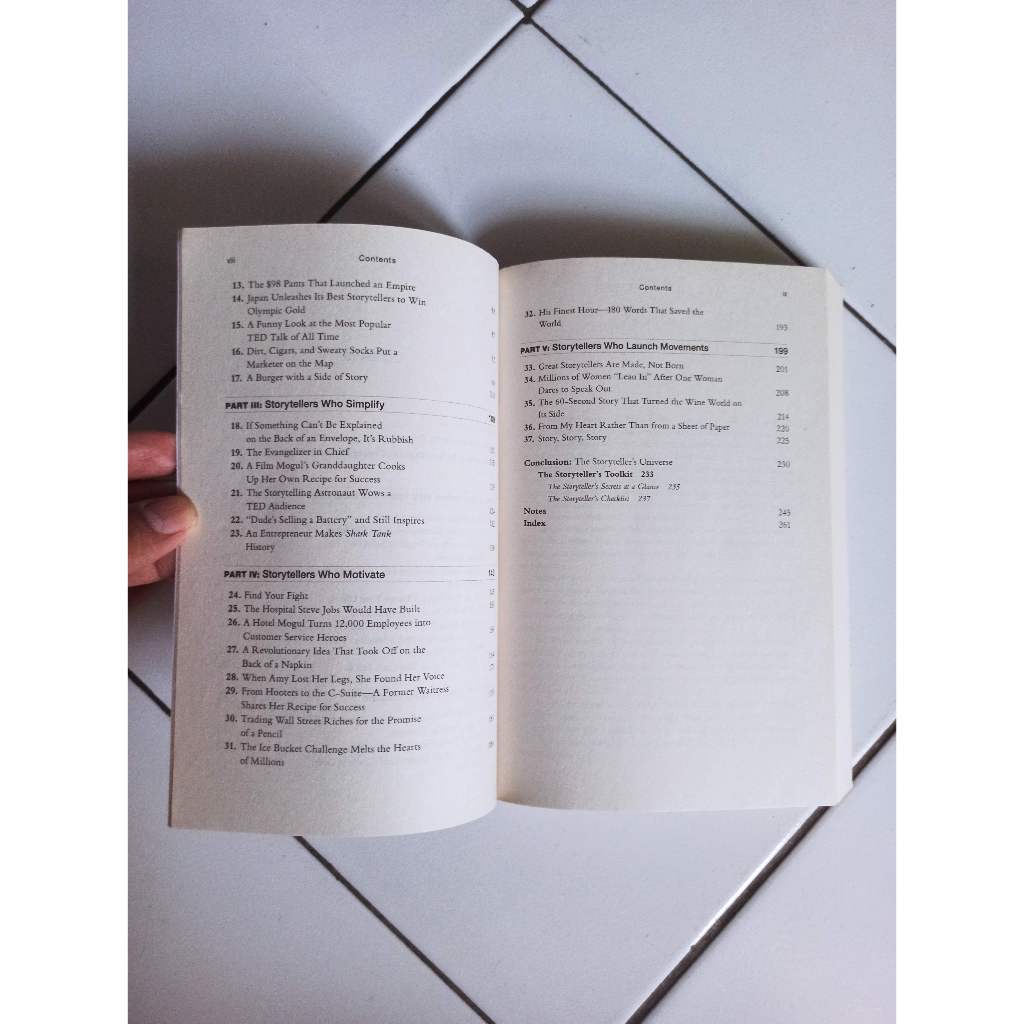 viii
Contents
13. The $98 Pants That Launched an Empire
14. Japan Unleashes Its Best Storytellers to Win
Olympic Gold
15. A Funny Look at the Most Popular
TED Talk of All Time
16. Dirt, Cigars, and Sweaty Socks Put a
Marketer on the Map
17. A Burger with a Side of Story
PART III: Storytellers Who Simplify
18. If Something Can't Be Explained
on the Back of an Envelope, It's Rubbish
19. The Evangelizer in Chief
20. A Film Mogul's Granddaughter Cooks
Up Her Own Recipe for Success
21. The Storytelling Astronaut Wows a
TED Audience
22. "Dude's Selling a Battery" and Still Inspires
23. An Entrepreneur Makes Shark Tank
History
PART IV: Storytellers Who Motivate
24. Find Your Fight
25. The Hospital Steve Jobs Would Have Built
26. A Hotel Mogul Turns 12,000 Employees into
Customer Service Heroes
27. A Revolutionary Idea That Took Off on the
Back of a Napkin
28. When Amy Lost Her Legs, She Found Her Voice
29. From Hooters to the C-Suite—A Former Waitress
Shares Her Recipe for Success
30. Trading Wall Street Riches for the Promise
of a Pencil
31. The Ice Bucket Challenge Melts the Hearts
of Millions
Contents
ix
32. His Finest Hour—180 Words That Saved the
World 193
PART V: Storytellers Who Launch Movements 199
33. Great Storytellers Are Made, Not Born 201
34. Millions of Women "Lean In" After One Woman
Dares to Speak Out 208
35. The 60-Second Story That Turned the Wine World on
Its Side 214
36. From My Heart Rather Than from a Sheet of Paper 220
37. Story, Story, Story 225
Conclusion: The Storyteller's Universe 230
The Storyteller's Toolkit 233
The Storyteller's Secrets at a Glance 235
The Storyteller's Checklist 237
Notes 245
Index 261